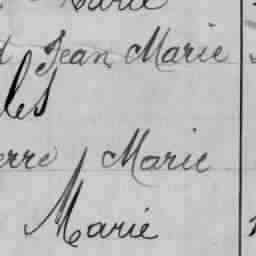 Marie
Jean Marie
les
erre Marie
Marie